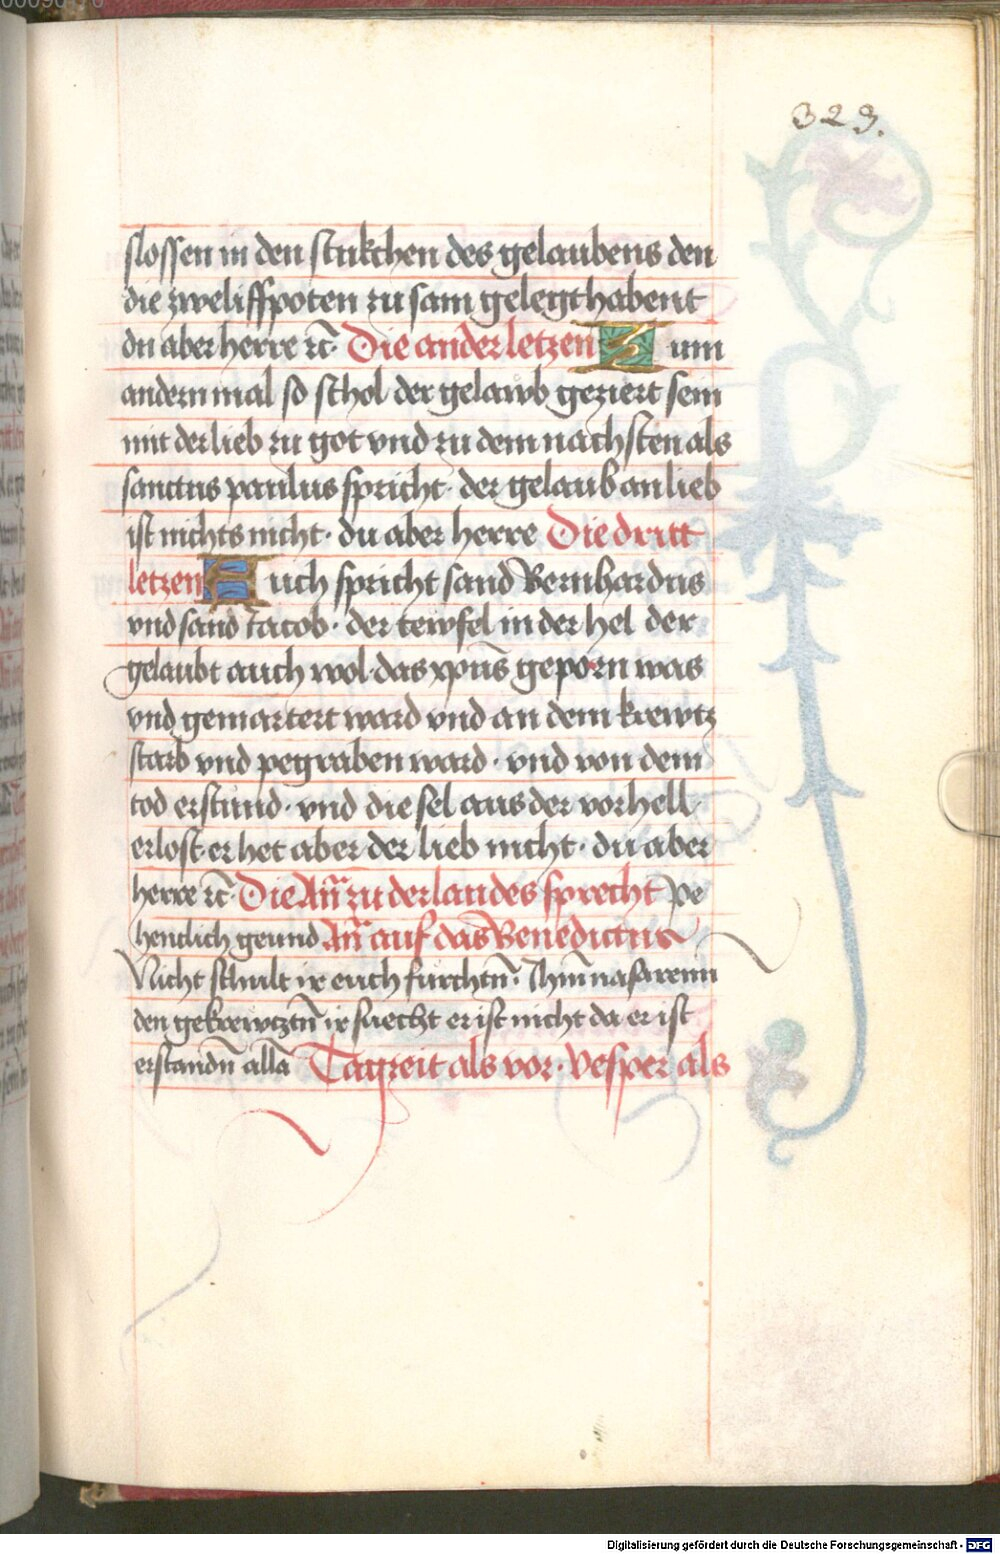 323.
slossen in den stukchen des gelaubens den
die zweliffpoten zu sam gelegt habent
du aber herre ꝛc̄. Die ander letzen Zum
andern mal so schol der gelawb geziert sein
mit der lieb zu got vnd zu dem nachsten als
sanctus paulus spricht· der gelaub an lieb
ist nichts nicht· du aber herre Die dritt
letzen Auch spricht sand Bernhardus
vnd sand Iacob· der tewfel in der hel der
gelaubt auch wol· das xpūs geporn was
vnd gemartert ward vnd an dem krewtz
starb vnd pegraben ward· vnd von dem
tod erstund· vnd die sel aus der vorhell·
erlost· er het aber der lieb nicht· du aber
herre ꝛc̄· Die Añ zu der laudes sprecht pe
hentlich geund Añ auf das Benedictus
Nicht schult ir euch furchtn̄· Ihm̄ nasarenū
den gekrewtztn̄ ir suecht er ist nicht da er ist
erstandn̄ allā Tagzeit als vor· Vesper als
Digitalisierung gefördert durch die Deutsche Forschungsgemeinschaft - DFG